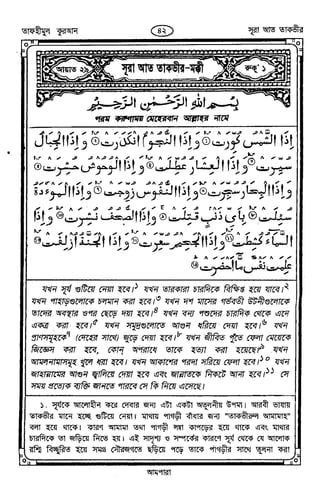 তাফহীমুল কুরআন ৪২ সূরা আত তাকভীর
আয়াত ২৯ সূরা আত তাকভীর-মক্কী রুকূ' ১
بِسْمِ اللهِ الرَّحْمٰنِ الرَّحِيْمِ
পরম করুণাময় মেহেরবান আল্লাহর নামে
اِذَا الشَّمْسُ كُوِّرَتْ ۙ وَاِذَا النُّجُوْمُ انْكَدَرَتْ ۙ وَاِذَا الْجِبَالُ
سُيِّرَتْ ۙ وَاِذَا الْعِشَارُ عُطِّلَتْ ۙ وَاِذَا الْوُحُوْشُ حُشِرَتْ ۙ
وَاِذَا الْبِحَارُ سُجِّرَتْ ۙ وَاِذَا النُّفُوْسُ زُوِّجَتْ ۙ وَاِذَا الْمَوْءٗدَةُ
سُئِلَتْ ۙ بِاَيِّ ذَنْۢبٍ قُتِلَتْ ۚ وَاِذَا الصُّحُفُ نُشِرَتْ ۙ وَاِذَا
السَّمَآءُ كُشِطَتْ ۙ وَاِذَا الْجَحِيْمُ سُعِّرَتْ ۙ وَاِذَا الْجَنَّةُ اُزْلِفَتْ ۙ
عَلِمَتْ نَفْسٌ مَّآ اَحْضَرَتْ ۗ
যখন সূর্য গুটিয়ে দেয়া হবে।১ যখন তারকারা চারদিকে বিক্ষিপ্ত হয়ে যাবে।২
যখন পাহাড়গুলোকে চলমান করা হবে।৩ যখন দশ মাসের গর্ভবতী উটনীগুলোকে
তাদের অবস্থার ওপর ছেড়ে দেয়া হবে।৪ যখন বন্য পশুদের চারদিক থেকে এনে
একত্র করা হবে।৫ যখন সমুদ্রগুলোতে আগুন ধরিয়ে দেয়া হবে।৬ যখন
প্রাণসমূহকে৭ (দেহের সাথে) জুড়ে দেয়া হবে।৮ যখন জীবিত পুঁতে ফেলা মেয়েকে
জিজ্ঞেস করা হবে, কোন্ অপরাধে তাকে হত্যা করা হয়েছে?৯ যখন
আমলনামাসমূহ খুলে ধরা হবে। যখন আকাশের পরদা সরিয়ে ফেলা হবে।১০ যখন
জাহান্নামের আগুন জ্বালিয়ে দেয়া হবে এবং জান্নাতকে নিকটে আনা হবে।১১ সে
সময় প্রত্যেক ব্যক্তি জানতে পারবে সে কি নিয়ে এসেছে।
১. সূর্যকে আলোহীন করে দেবার জন্য এটা একটা অতুলনীয় উপমা। আরবী ভাষায়
তাকভীর মানে হচ্ছে গুটিয়ে নেয়া। মাথায় পাগড়ী বাঁধার জন্য "তাকভীরুল আমামাহ"
বলা হয়ে থাকে। কারণ আমামা তথা পাগড়ী লম্বা কাপড়ের হয়ে থাকে এবং মাথার
চারদিকে তা জড়িয়ে নিতে হয়। এই সাদৃশ্য ও সম্পর্কের কারণে সূর্য থেকে যে আলোক
রশ্মি বিচ্ছুরিত হয়ে সমগ্র সৌরজগতে ছড়িয়ে পড়ে তাকে পাগড়ীর সাথে তুলনা করা
আমপারা